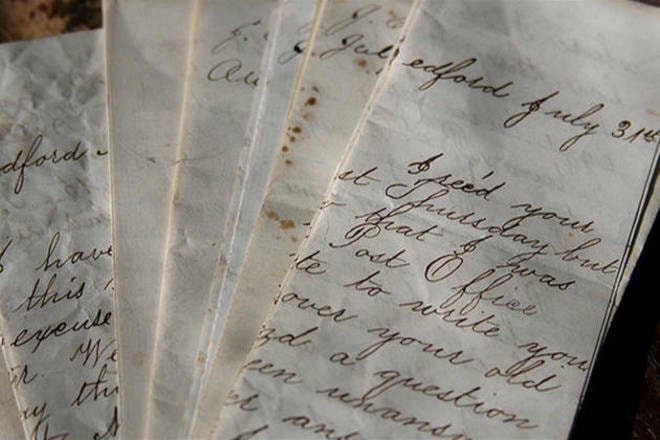 dford
have
this
excuse
We
Au
edford July 31st
I rec'd your
st Thursday but
that I was
Post Office
te to write you
over your old
a question
een unansw